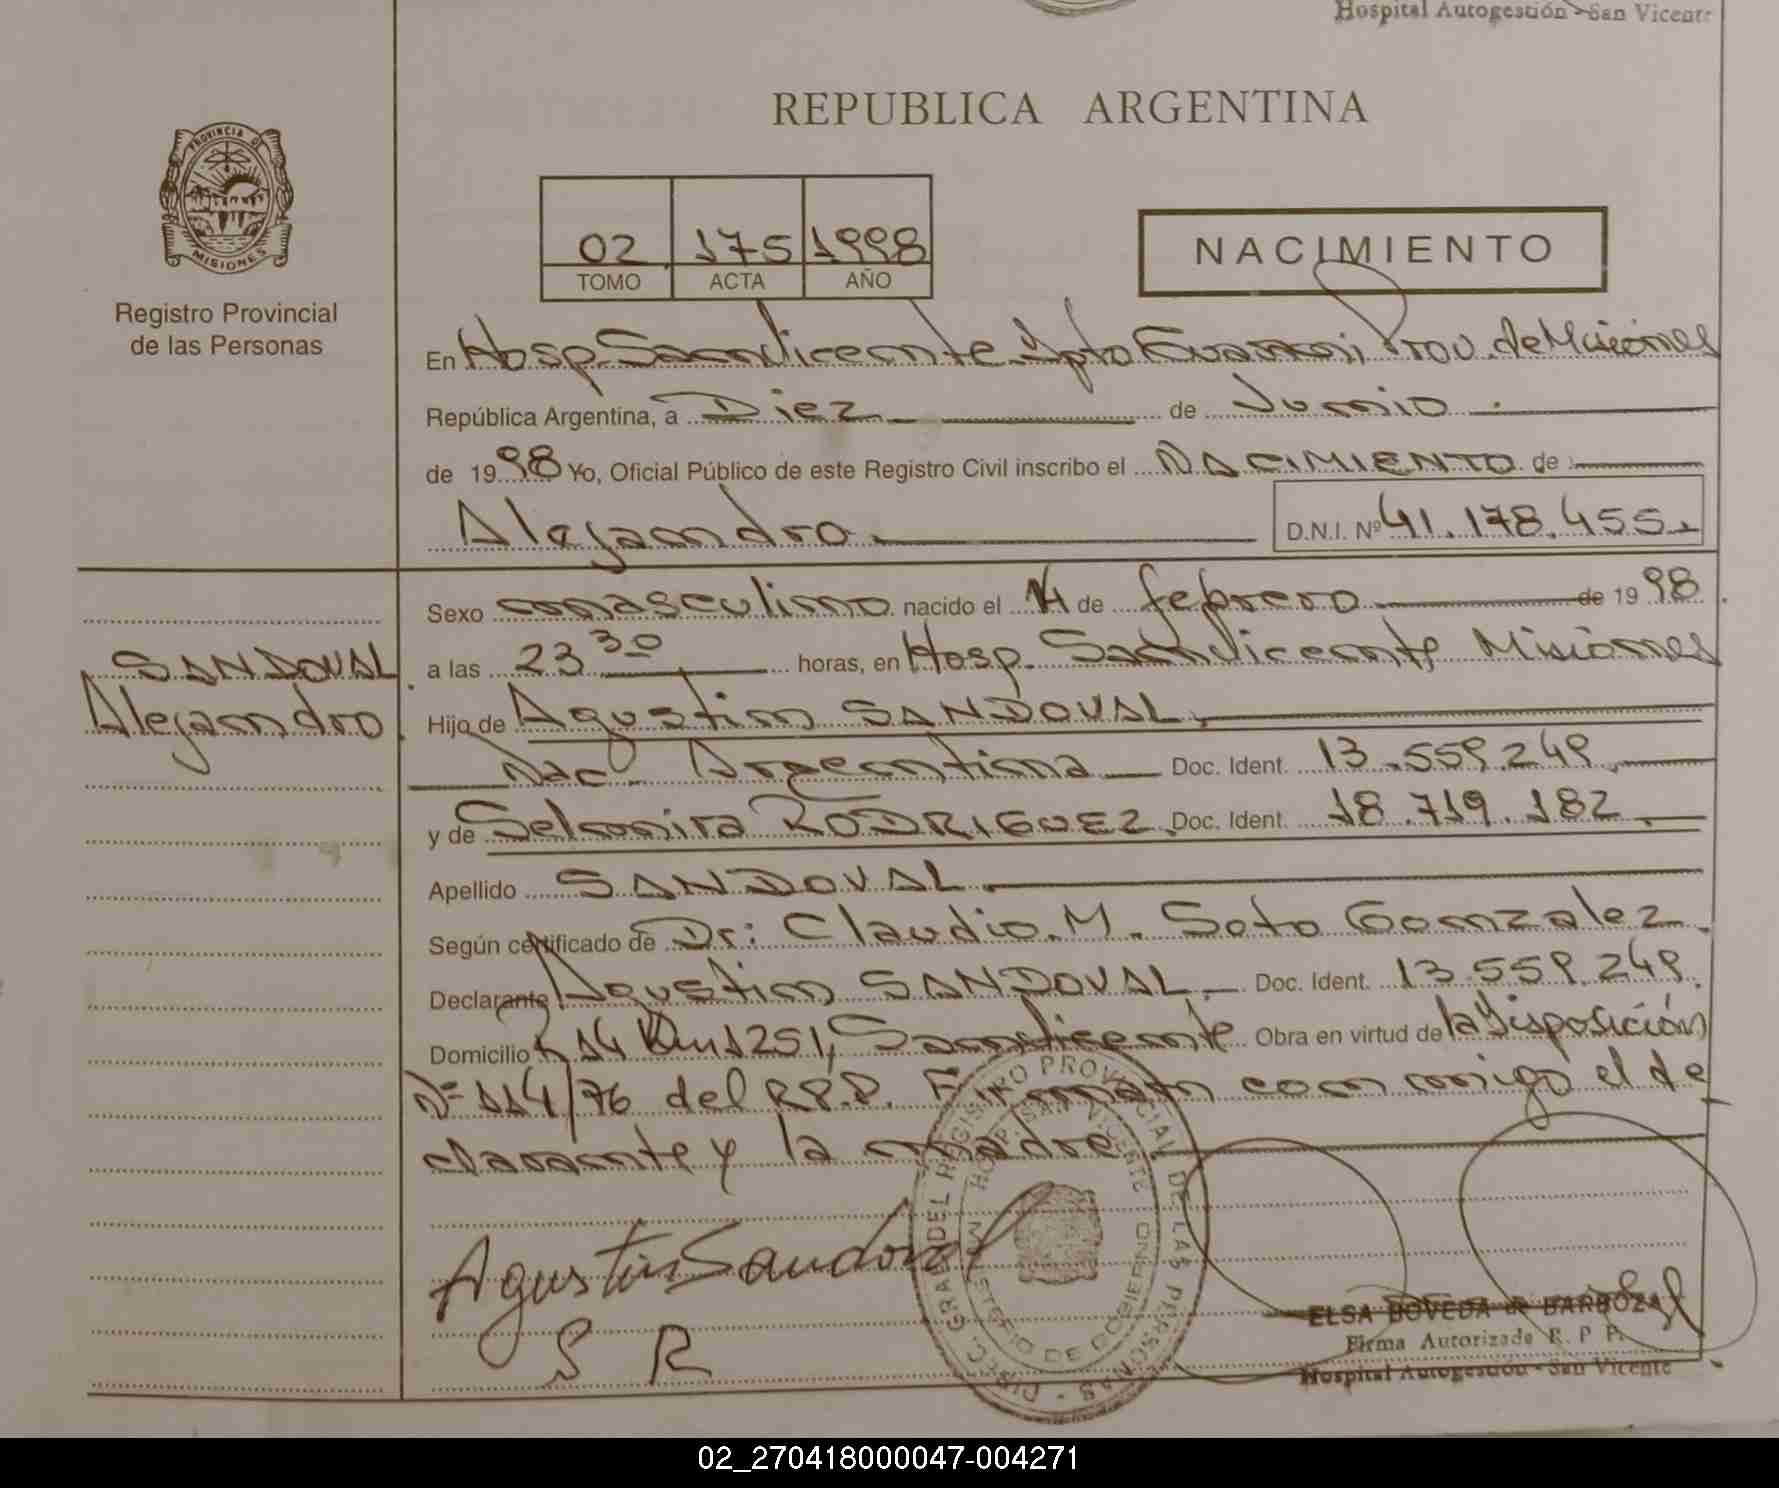 Hospital Autogestión - San Vicente
REPUBLICA ARGENTINA
PROVINCIA DE
MISIONES
Registro Provincial
de las Personas
02 175 1998
TOMO ACTA AÑO
NACIMIENTO
En Hosp. San Vicente Dpto Guarani, Prov. de Misiones
República Argentina, a Diez de Junio
de 1998 Yo, Oficial Público de este Registro Civil inscribo el NACIMIENTO de
Alejandro D.N.I. Nº 41.178.455
SANDOVAL
Alejandro
Sexo masculino nacido el 14 de febrero de 1998
a las 23 30 horas, en Hosp. San Vicente Misiones
Hijo de Agustin SANDOVAL
Nac Argentina Doc. Ident. 13.559.249
y de Selmira RODRIGUEZ Doc. Ident. 18.719.182
Apellido SANDOVAL
Según certificado de Dr: Claudio M. Soto Gonzalez
Declarante Agustin SANDOVAL Doc. Ident. 13.559.249
Domicilio R 14 Km 1251, San Vicente Obra en virtud de la Disposición
Nº 114/76 del R.P.P. Firman conmigo el de
clarante y la madre
Agustin Sandoval
S R
DIREC. GRAL. DEL REGISTRO PROVINCIAL DE LAS PERSONAS
HOSP. SAN VICENTE
MINISTERIO DE GOBIERNO
ELSA BOVEDA de BARBOZA
Firma Autorizada R. P. P.
Hospital Autogestión - San Vicente
02_270418000047-004271